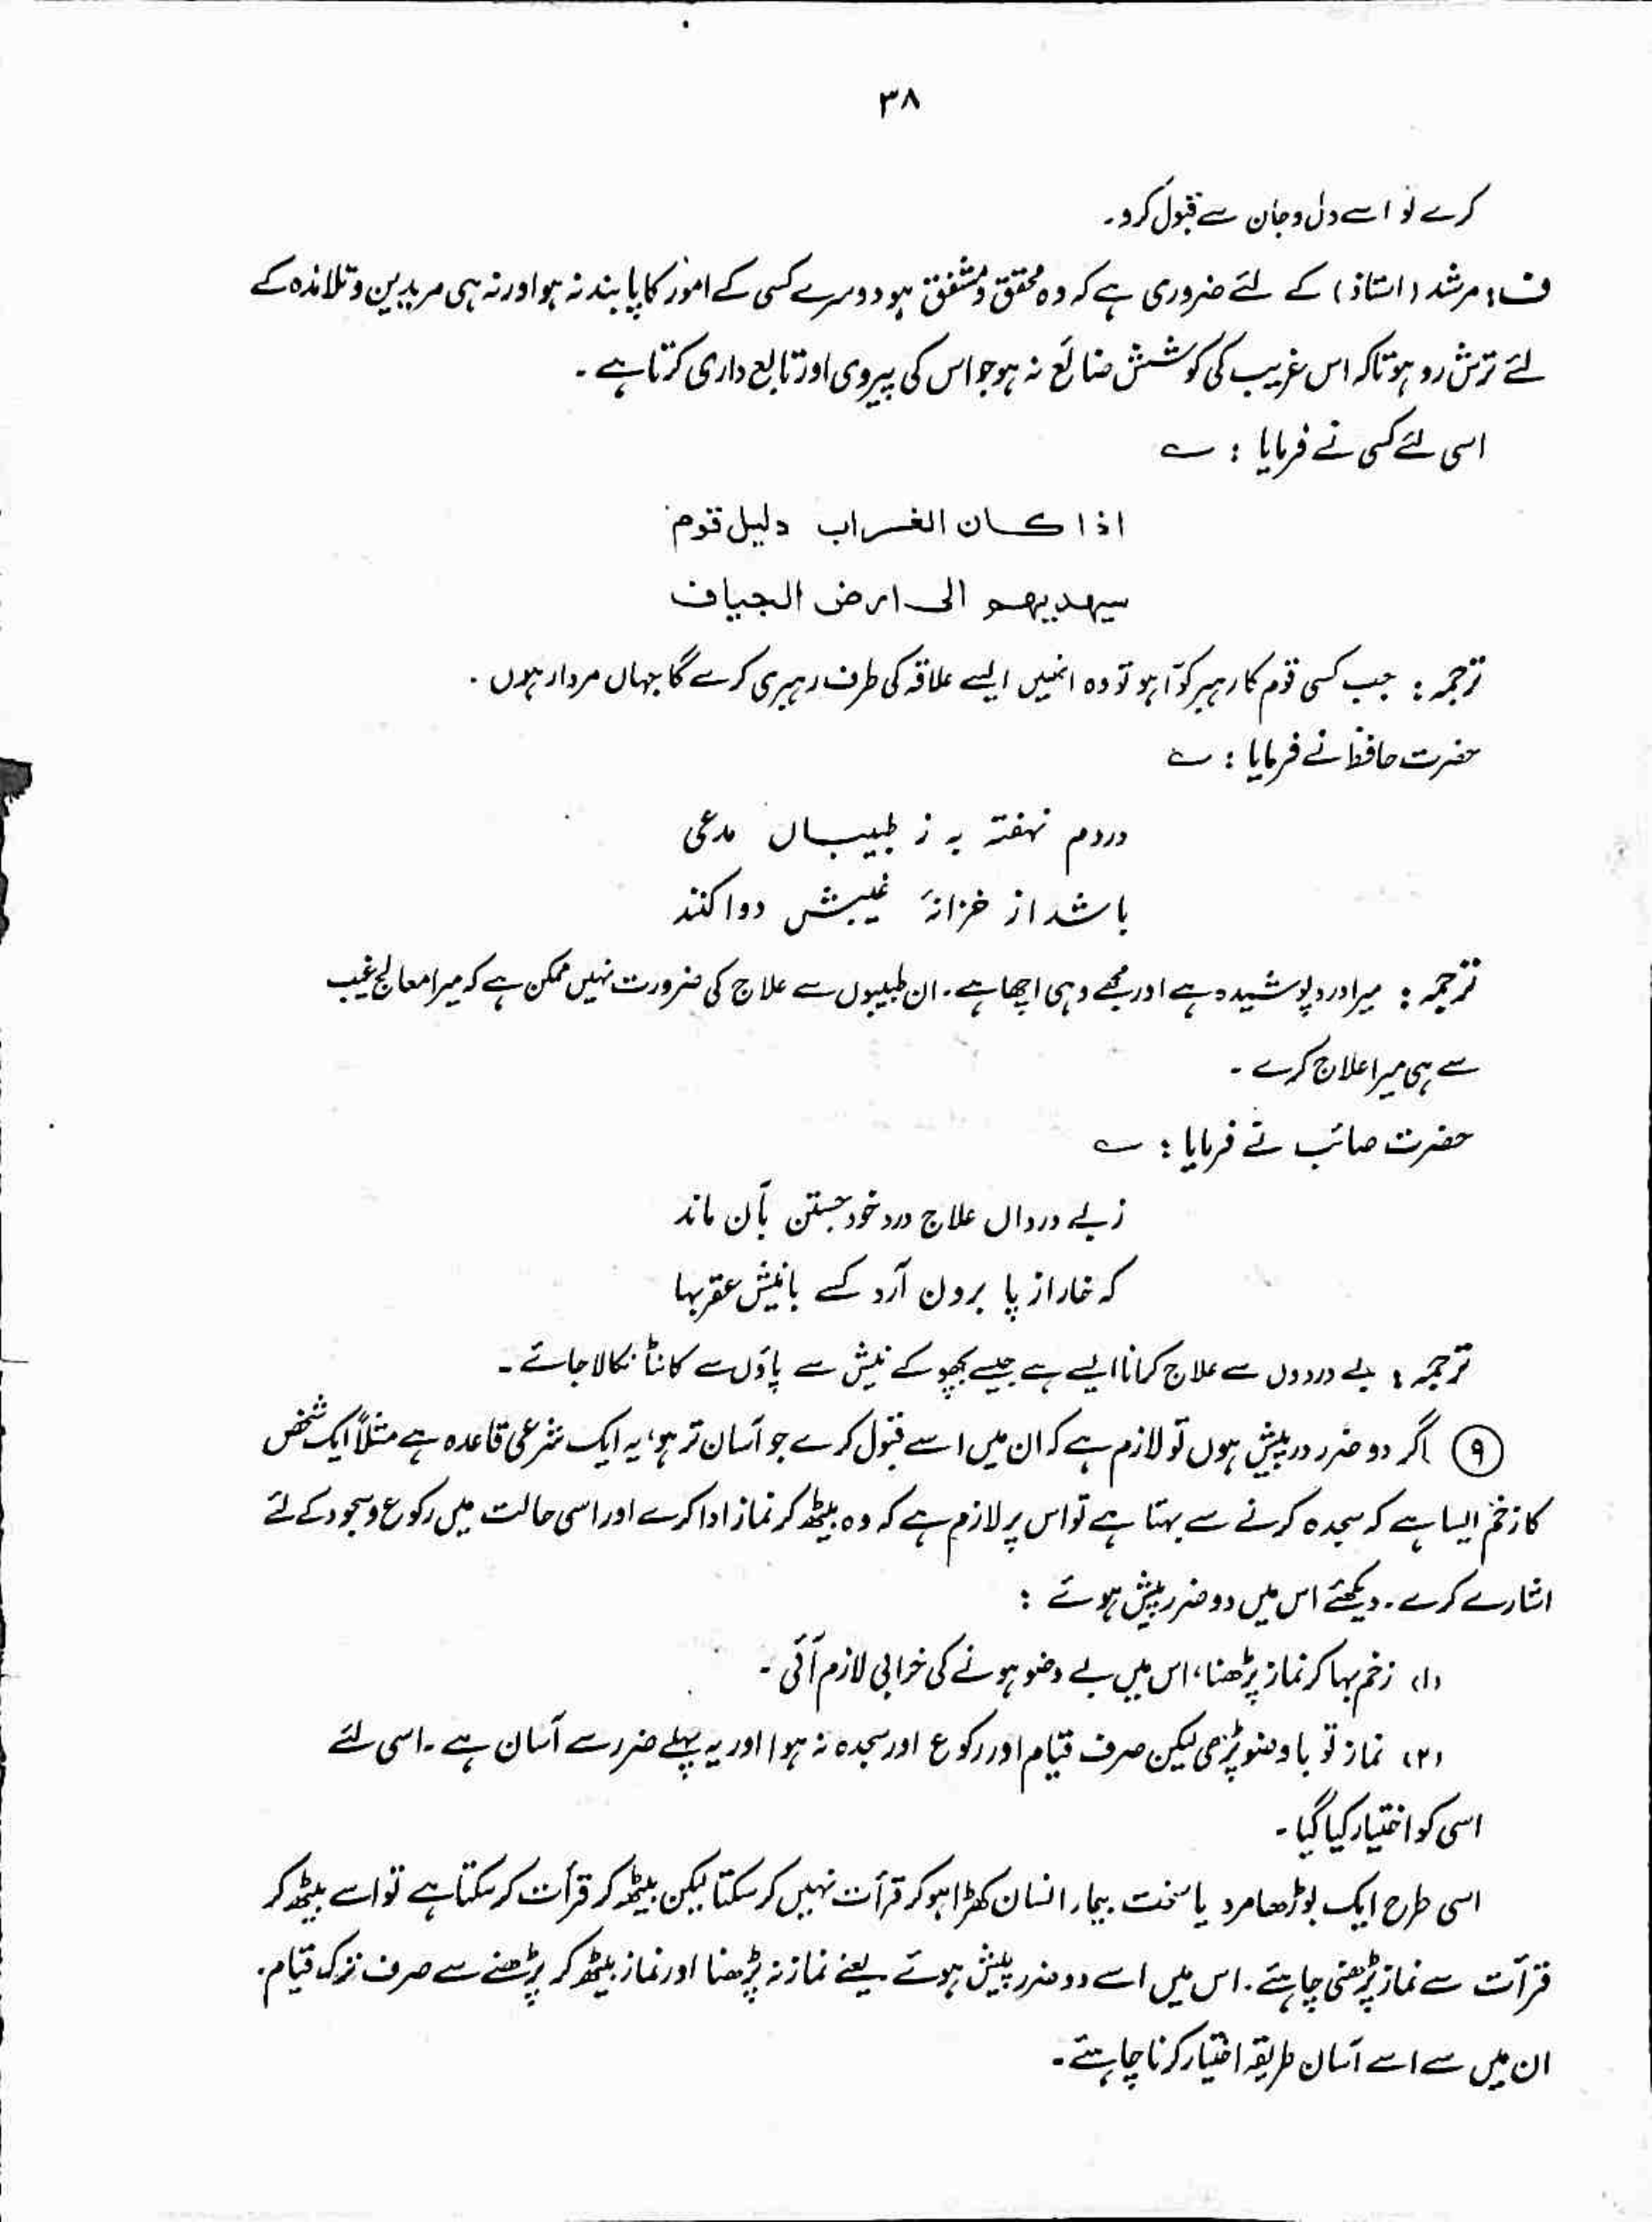 ۳۸
کرے تو اسے دل و جان سے قبول کرو۔
ف: مرشد (استاذ) کے لئے ضروری ہے کہ وہ محقق و مشفق ہو دوسرے کسی کے امور کا پابند نہ ہو اور نہ ہی مریدین و تلامذہ کے
لئے ترش رو ہو تاکہ اس غریب کی کوشش ضائع نہ ہو جو اس کی پیروی اور تابع داری کرتا ہے۔
اسی لئے کسی نے فرمایا : ؎
اذا کان الغراب دلیل قوم
سیھدیھم الی ارض الجیاف
ترجمہ : جب کسی قوم کا رہبر کوّا ہو تو وہ انھیں ایسے علاقہ کی طرف رہبری کرے گا جہاں مردار ہوں۔
حضرت حافظ نے فرمایا : ؎
دردم نہفتہ بہ ز طبیبان مدعی
باشد از خزانۂ غیبش دوا کنند
ترجمہ : میرا درد پوشیدہ ہے اور مجھے وہی اچھا ہے۔ ان طبیبوں سے علاج کی ضرورت نہیں ممکن ہے کہ میرا معالج غیب
سے ہی میرا علاج کرے۔
حضرت صائب نے فرمایا : ؎
ز بے درداں علاج درد خود جستن بآن ماند
کہ خار از پا برون آرد کسے با نیش عقربہا
ترجمہ : بے دردوں سے علاج کرانا ایسے ہے جیسے بچھو کے نیش سے پاؤں سے کانٹا نکالا جائے۔
⑨ اگر دو ضرر درپیش ہوں تو لازم ہے کہ ان میں اسے قبول کرے جو آسان تر ہو، یہ ایک شرعی قاعدہ ہے مثلاً ایک شخص
کا زخم ایسا ہے کہ سجدہ کرنے سے بہتا ہے تو اس پر لازم ہے کہ وہ بیٹھ کر نماز ادا کرے اور اسی حالت میں رکوع و سجود کے لئے
اشارے کرے۔ دیکھئے اس میں دو ضرر پیش ہوئے :
(۱) زخم بہا کر نماز پڑھنا، اس میں بے وضو ہونے کی خرابی لازم آئی۔
(۲) نماز تو با وضو پڑھی لیکن صرف قیام اور رکوع اور سجدہ نہ ہوا اور یہ پہلے ضرر سے آسان ہے۔ اسی لئے
اسی کو اختیار کیا گیا۔
اسی طرح ایک بوڑھا مرد یا سخت بیمار انسان کھڑا ہو کر قرأت نہیں کر سکتا لیکن بیٹھ کر قرأت کر سکتا ہے تو اسے بیٹھ کر
قرأت سے نماز پڑھنی چاہئے۔ اس میں اسے دو ضرر پیش ہوئے یعنے نماز نہ پڑھنا اور نماز بیٹھ کر پڑھنے سے صرف ترک قیام۔
ان میں سے اسے آسان طریقہ اختیار کرنا چاہئے۔